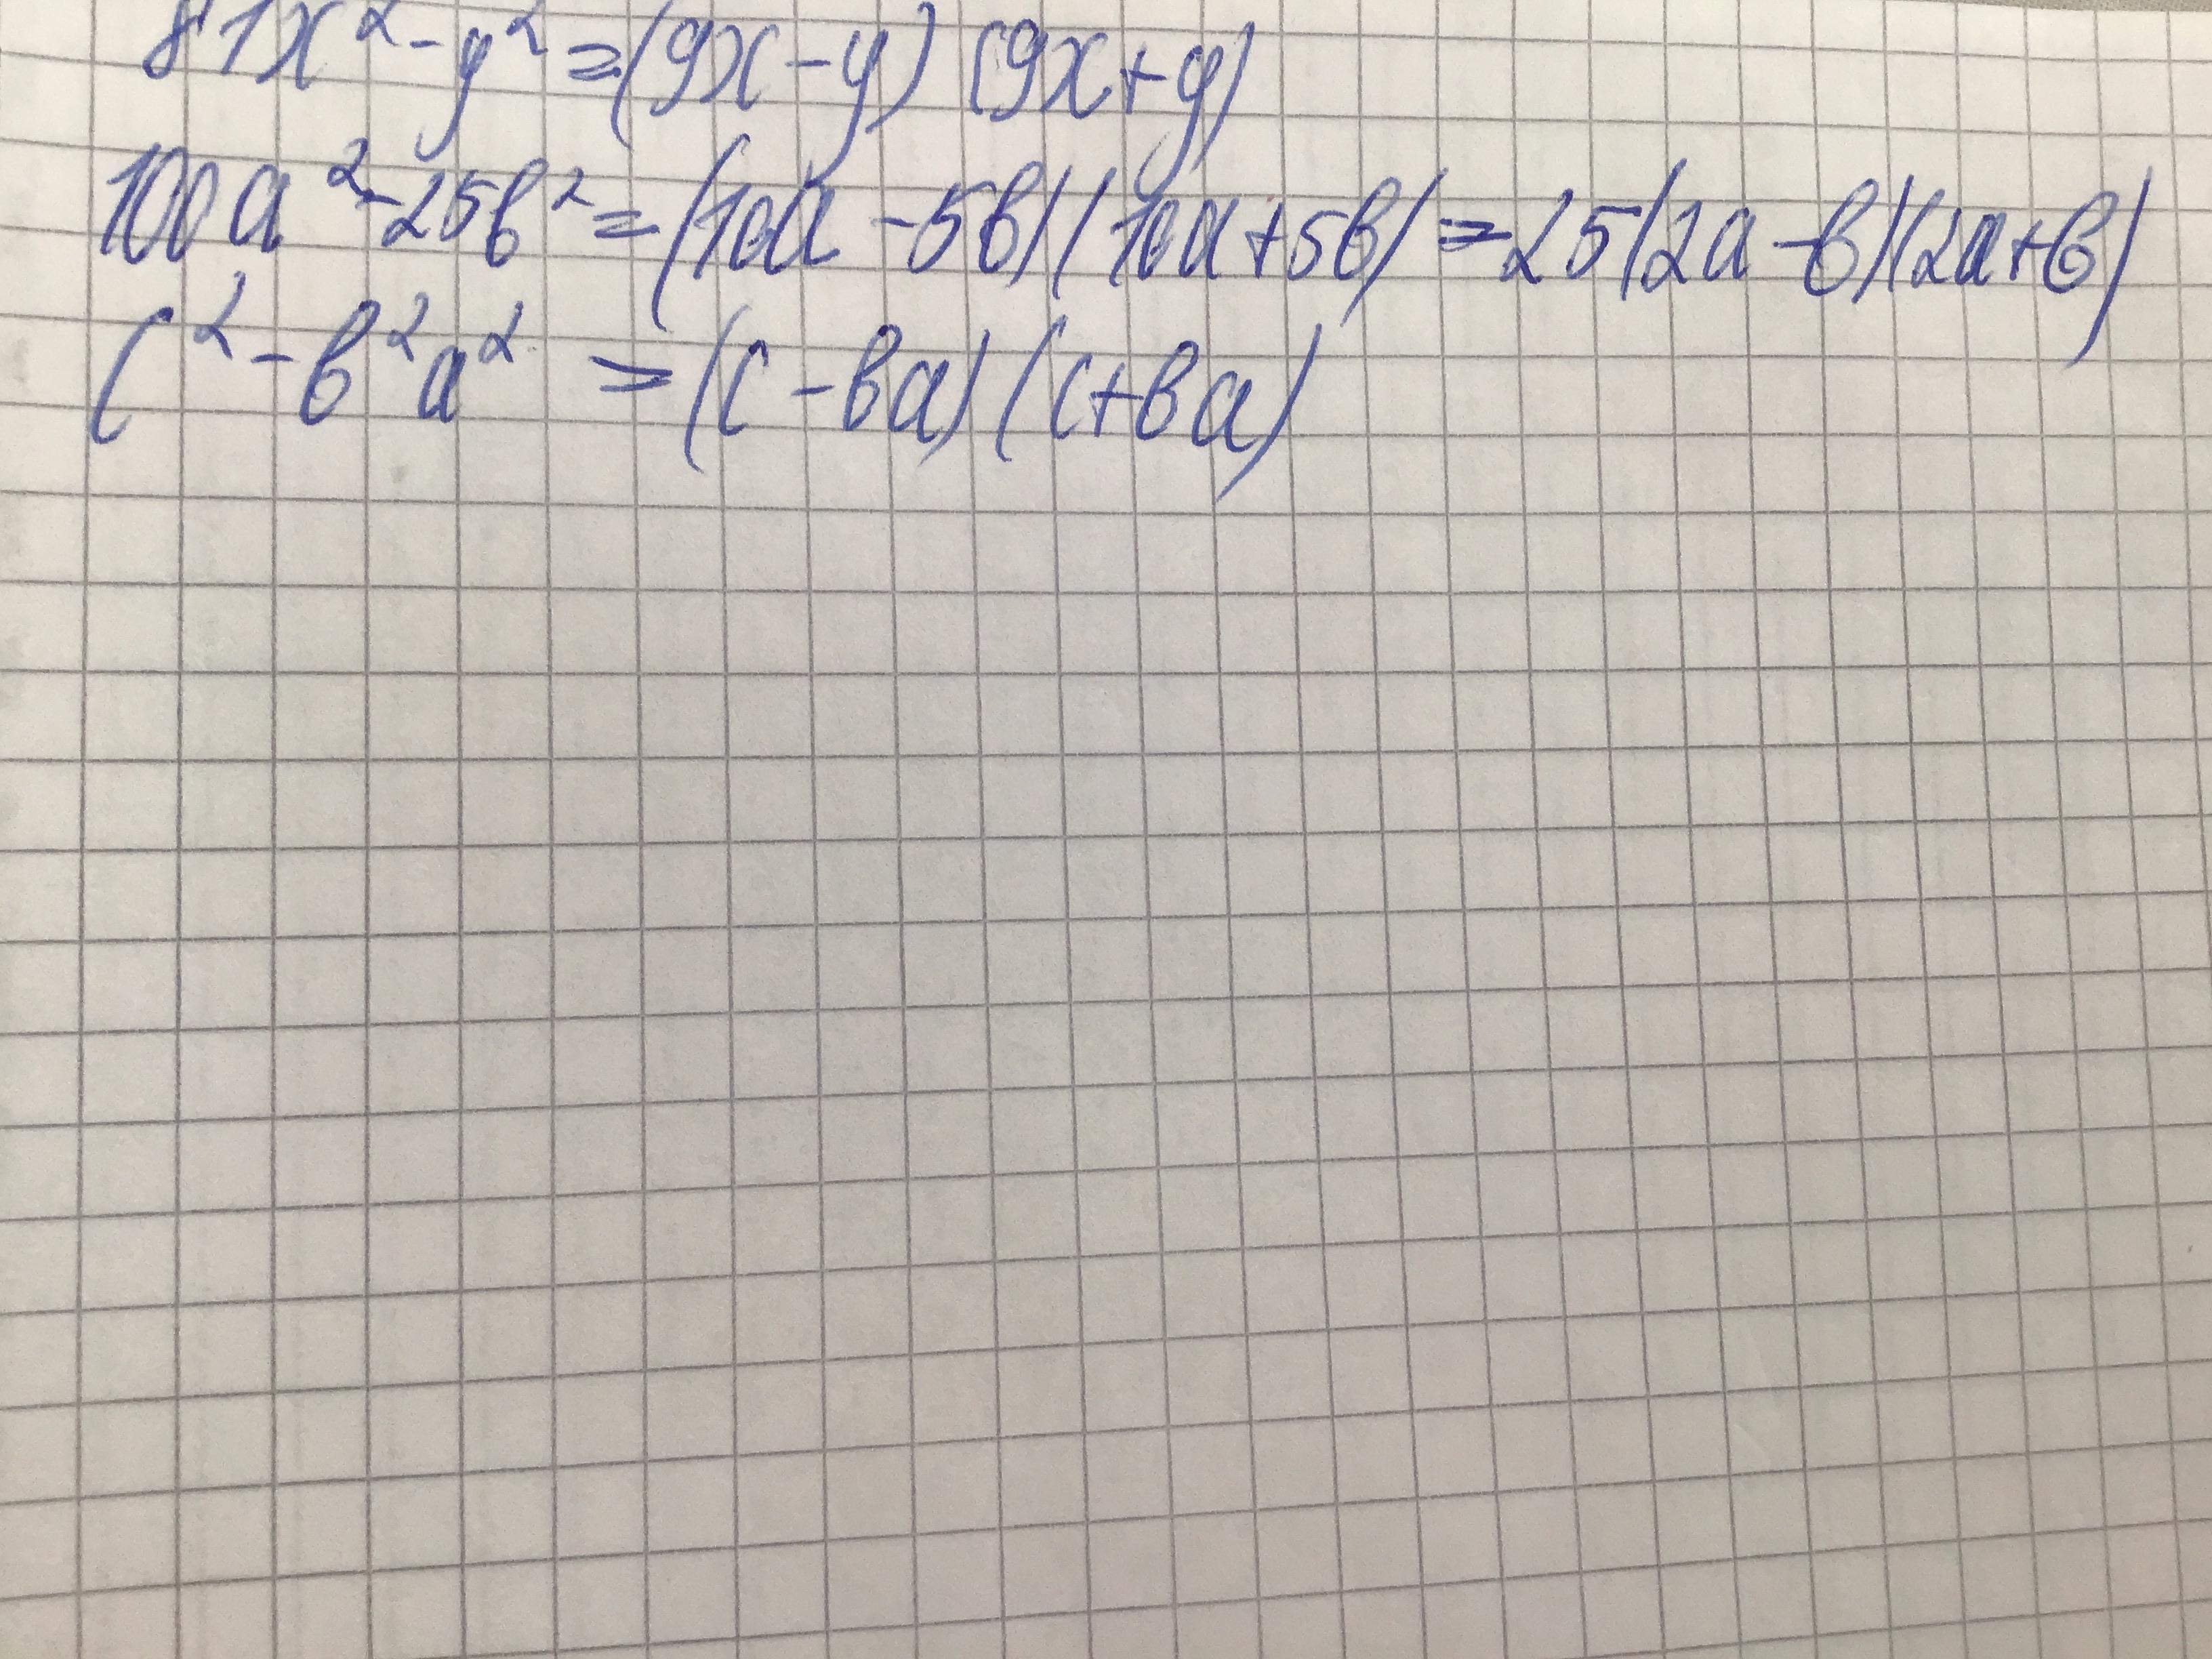 81x²-y²=(9x-y)(9x+y)
100a²-25b²=(10a-5b)(10a+5b)=25(2a-b)(2a+b)
c²-b²a²=(c-ba)(c+ba)